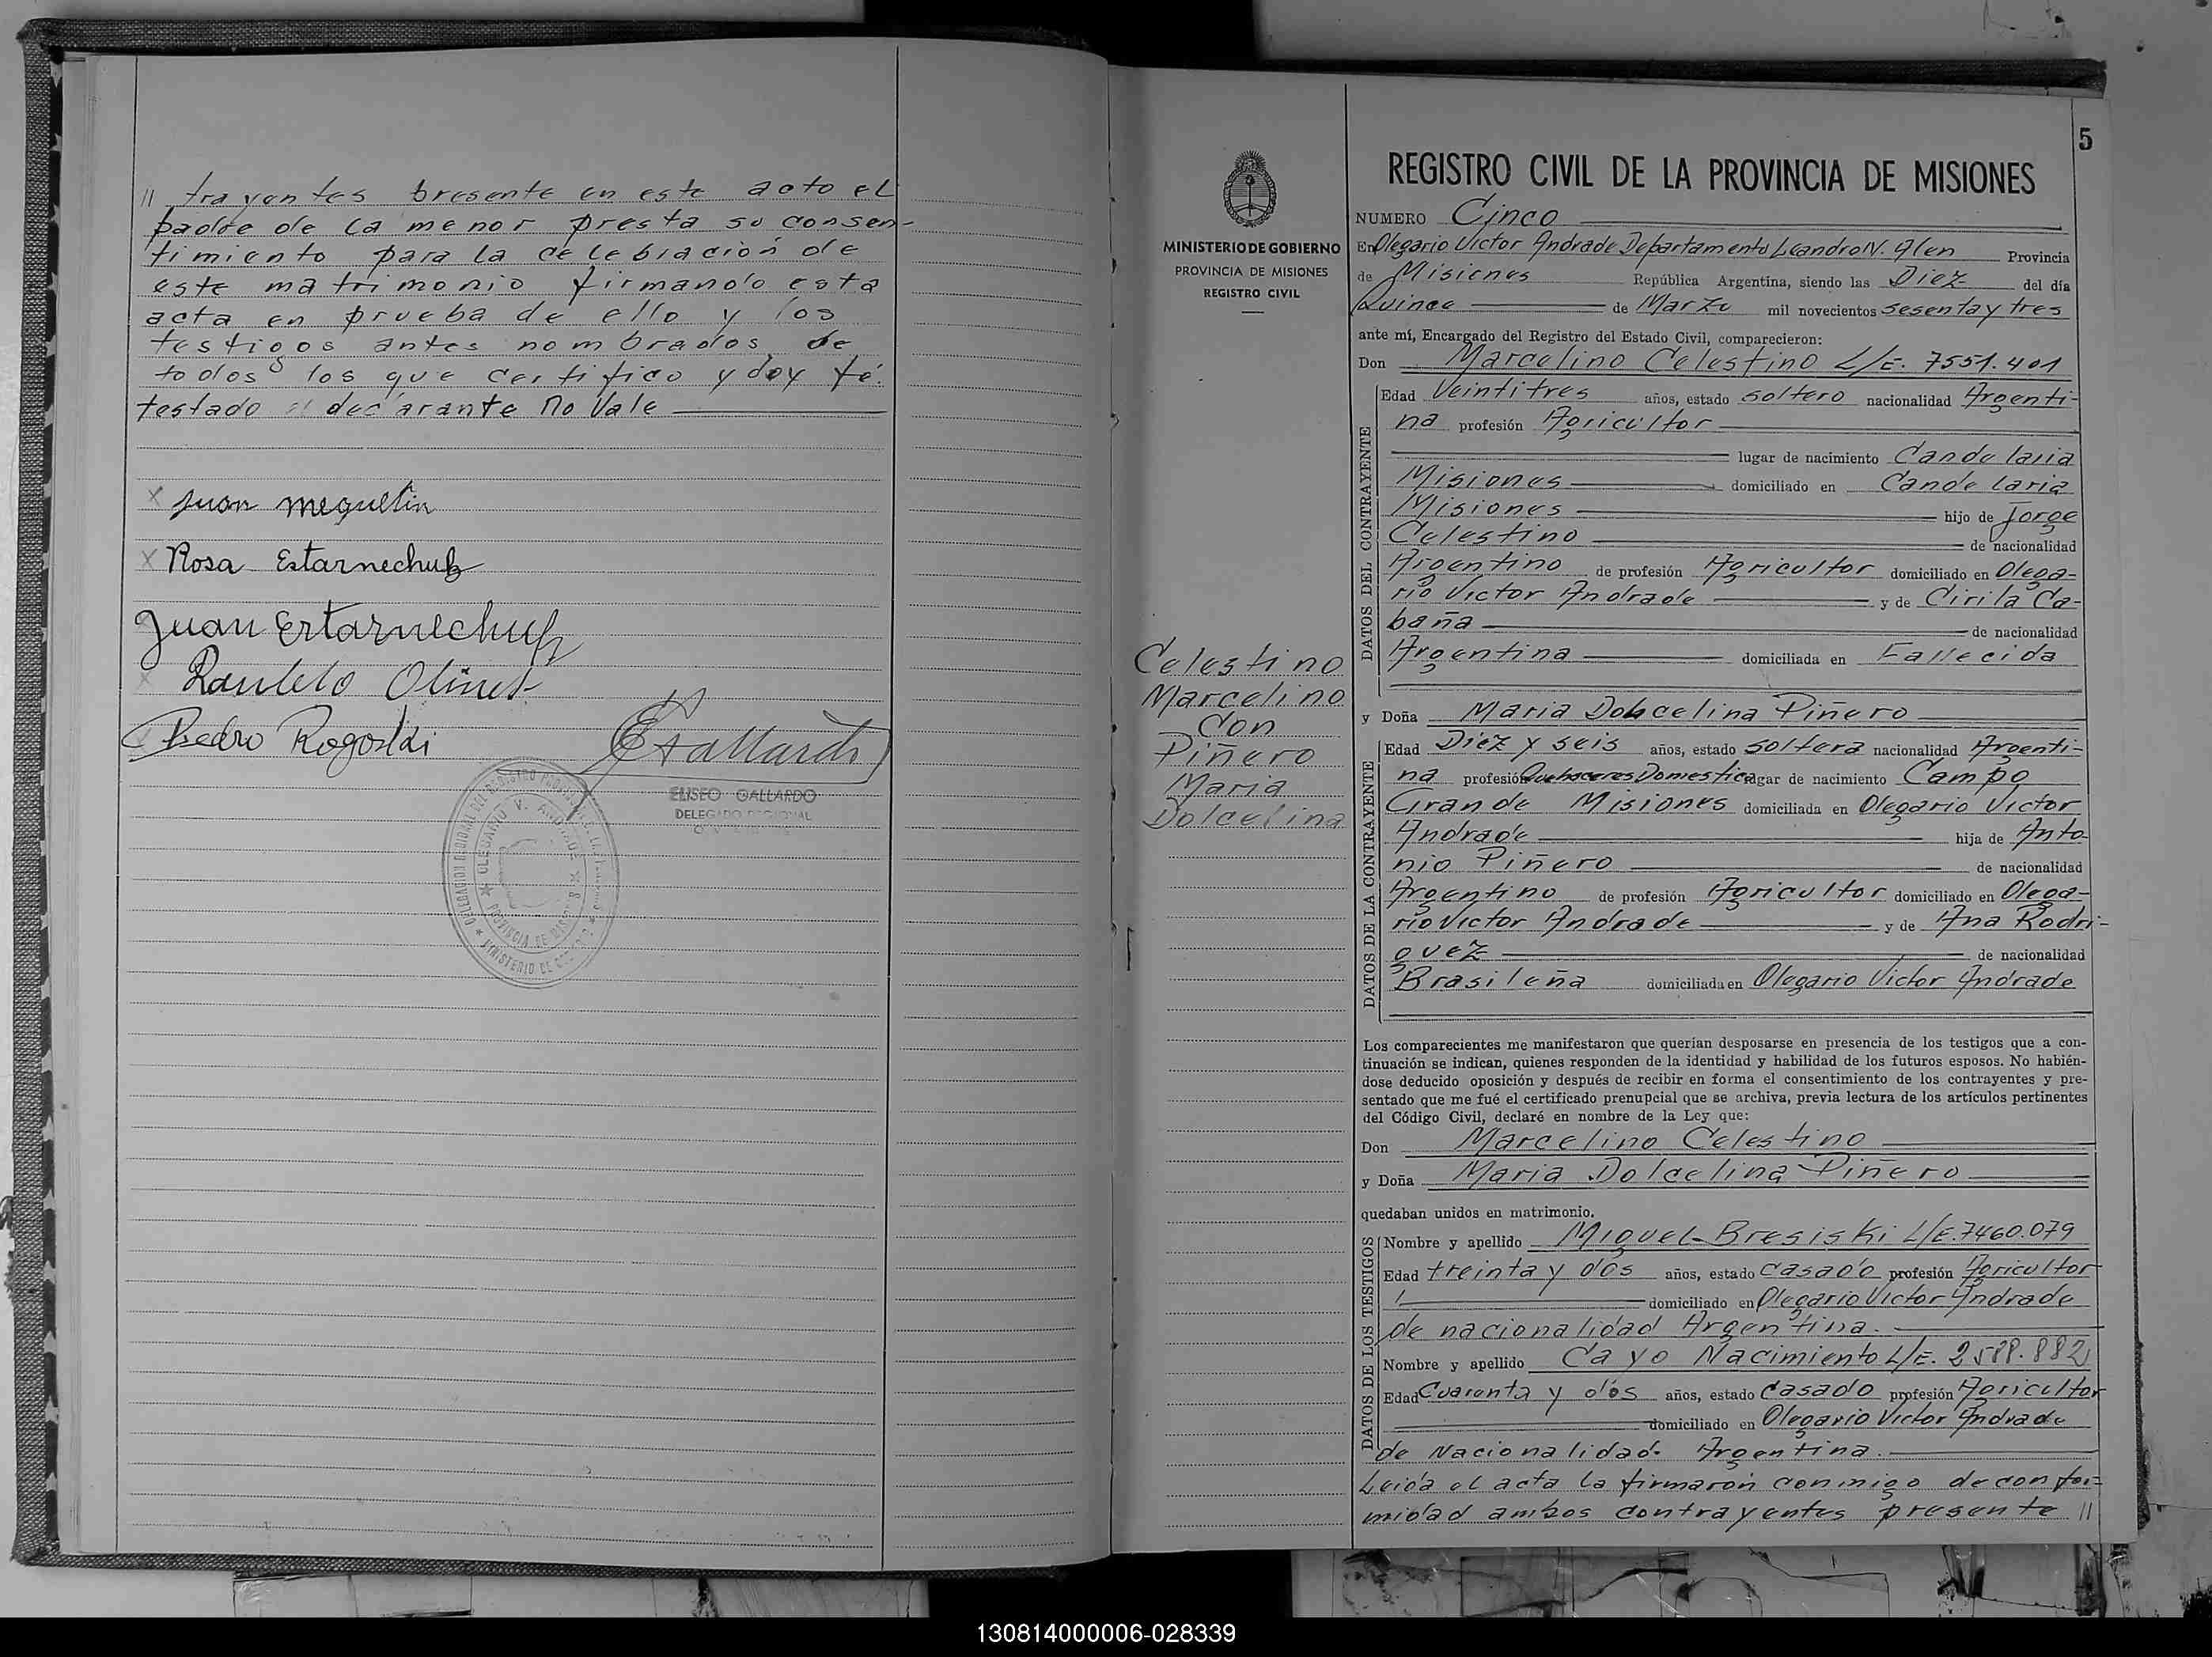 // trayentes presente en este acto el
padre de la menor presta su consen-
timiento para la celebración de
este matrimonio firmando esta
acta en prueba de ello y los
testigos antes nombrados de
todos los que certifico y doy fé.
testado declarante no vale
x Juan
x Rosa Estarnechuk
Juan Estarnechuk
Pedro Rogoski
ELISEO GALLARDO
DELEGADO REGIONAL
OLEGARIO V. ANDRADE
PROVINCIA DE
MINISTERIO DE
5
MINISTERIO DE GOBIERNO
PROVINCIA DE MISIONES
REGISTRO CIVIL
Celestino
Marcelino
Con
Piñero
Maria
Dolcelina
REGISTRO CIVIL DE LA PROVINCIA DE MISIONES
NUMERO Cinco
En Olegario Victor Andrade Departamento Leandro N. Alen Provincia
de Misiones República Argentina, siendo las Diez del día
Quince de Marzo mil novecientos sesenta y tres
ante mí, Encargado del Registro del Estado Civil, comparecieron:
Don Marcelino Celestino L/E. 7551.401
DATOS DEL CONTRAYENTE
Edad Veintitres años, estado soltero nacionalidad Argenti-
na profesión Agricultor
lugar de nacimiento Candelaria
Misiones domiciliado en Candelaria
Misiones hijo de Jorge
Celestino de nacionalidad
Argentino de profesión Agricultor domiciliado en Olega-
rio Victor Andrade y de Cirila Ca-
baña de nacionalidad
Argentina domiciliada en Fallecida
y Doña Maria Dolcelina Piñero
DATOS DE LA CONTRAYENTE
Edad Diez y seis años, estado soltera nacionalidad Argenti-
na profesión Quehaceres Domestic lugar de nacimiento Campo
Grande Misiones domiciliada en Olegario Victor
Andrade hija de Anto-
nio Piñero de nacionalidad
Argentino de profesión Agricultor domiciliado en Olega-
rio Victor Andrade y de Ana Rodri-
guez de nacionalidad
Brasileña domiciliada en Olegario Victor Andrade
Los comparecientes me manifestaron que querían desposarse en presencia de los testigos que a con-
tinuación se indican, quienes responden de la identidad y habilidad de los futuros esposos. No habién-
dose deducido oposición y después de recibir en forma el consentimiento de los contrayentes y pre-
sentado que me fué el certificado prenupcial que se archiva, previa lectura de los artículos pertinentes
del Código Civil, declaré en nombre de la Ley que:
Don Marcelino Celestino
y Doña Maria Dolcelina Piñero
quedaban unidos en matrimonio.
DATOS DE LOS TESTIGOS
Nombre y apellido Miguel Bresiski L/E. 7460.079
Edad treinta y dos años, estado casado profesión Agricultor
domiciliado en Olegario Victor Andrade
de nacionalidad Argentina.
Nombre y apellido Cayo Nacimiento L/E. 2588.882
Edad Cuarenta y dos años, estado casado profesión Agricultor
domiciliado en Olegario Victor Andrade
de Nacionalidad Argentina.
Leida el acta la firmaron conmigo de confor-
midad ambos contrayentes presente //
130814000006-028339